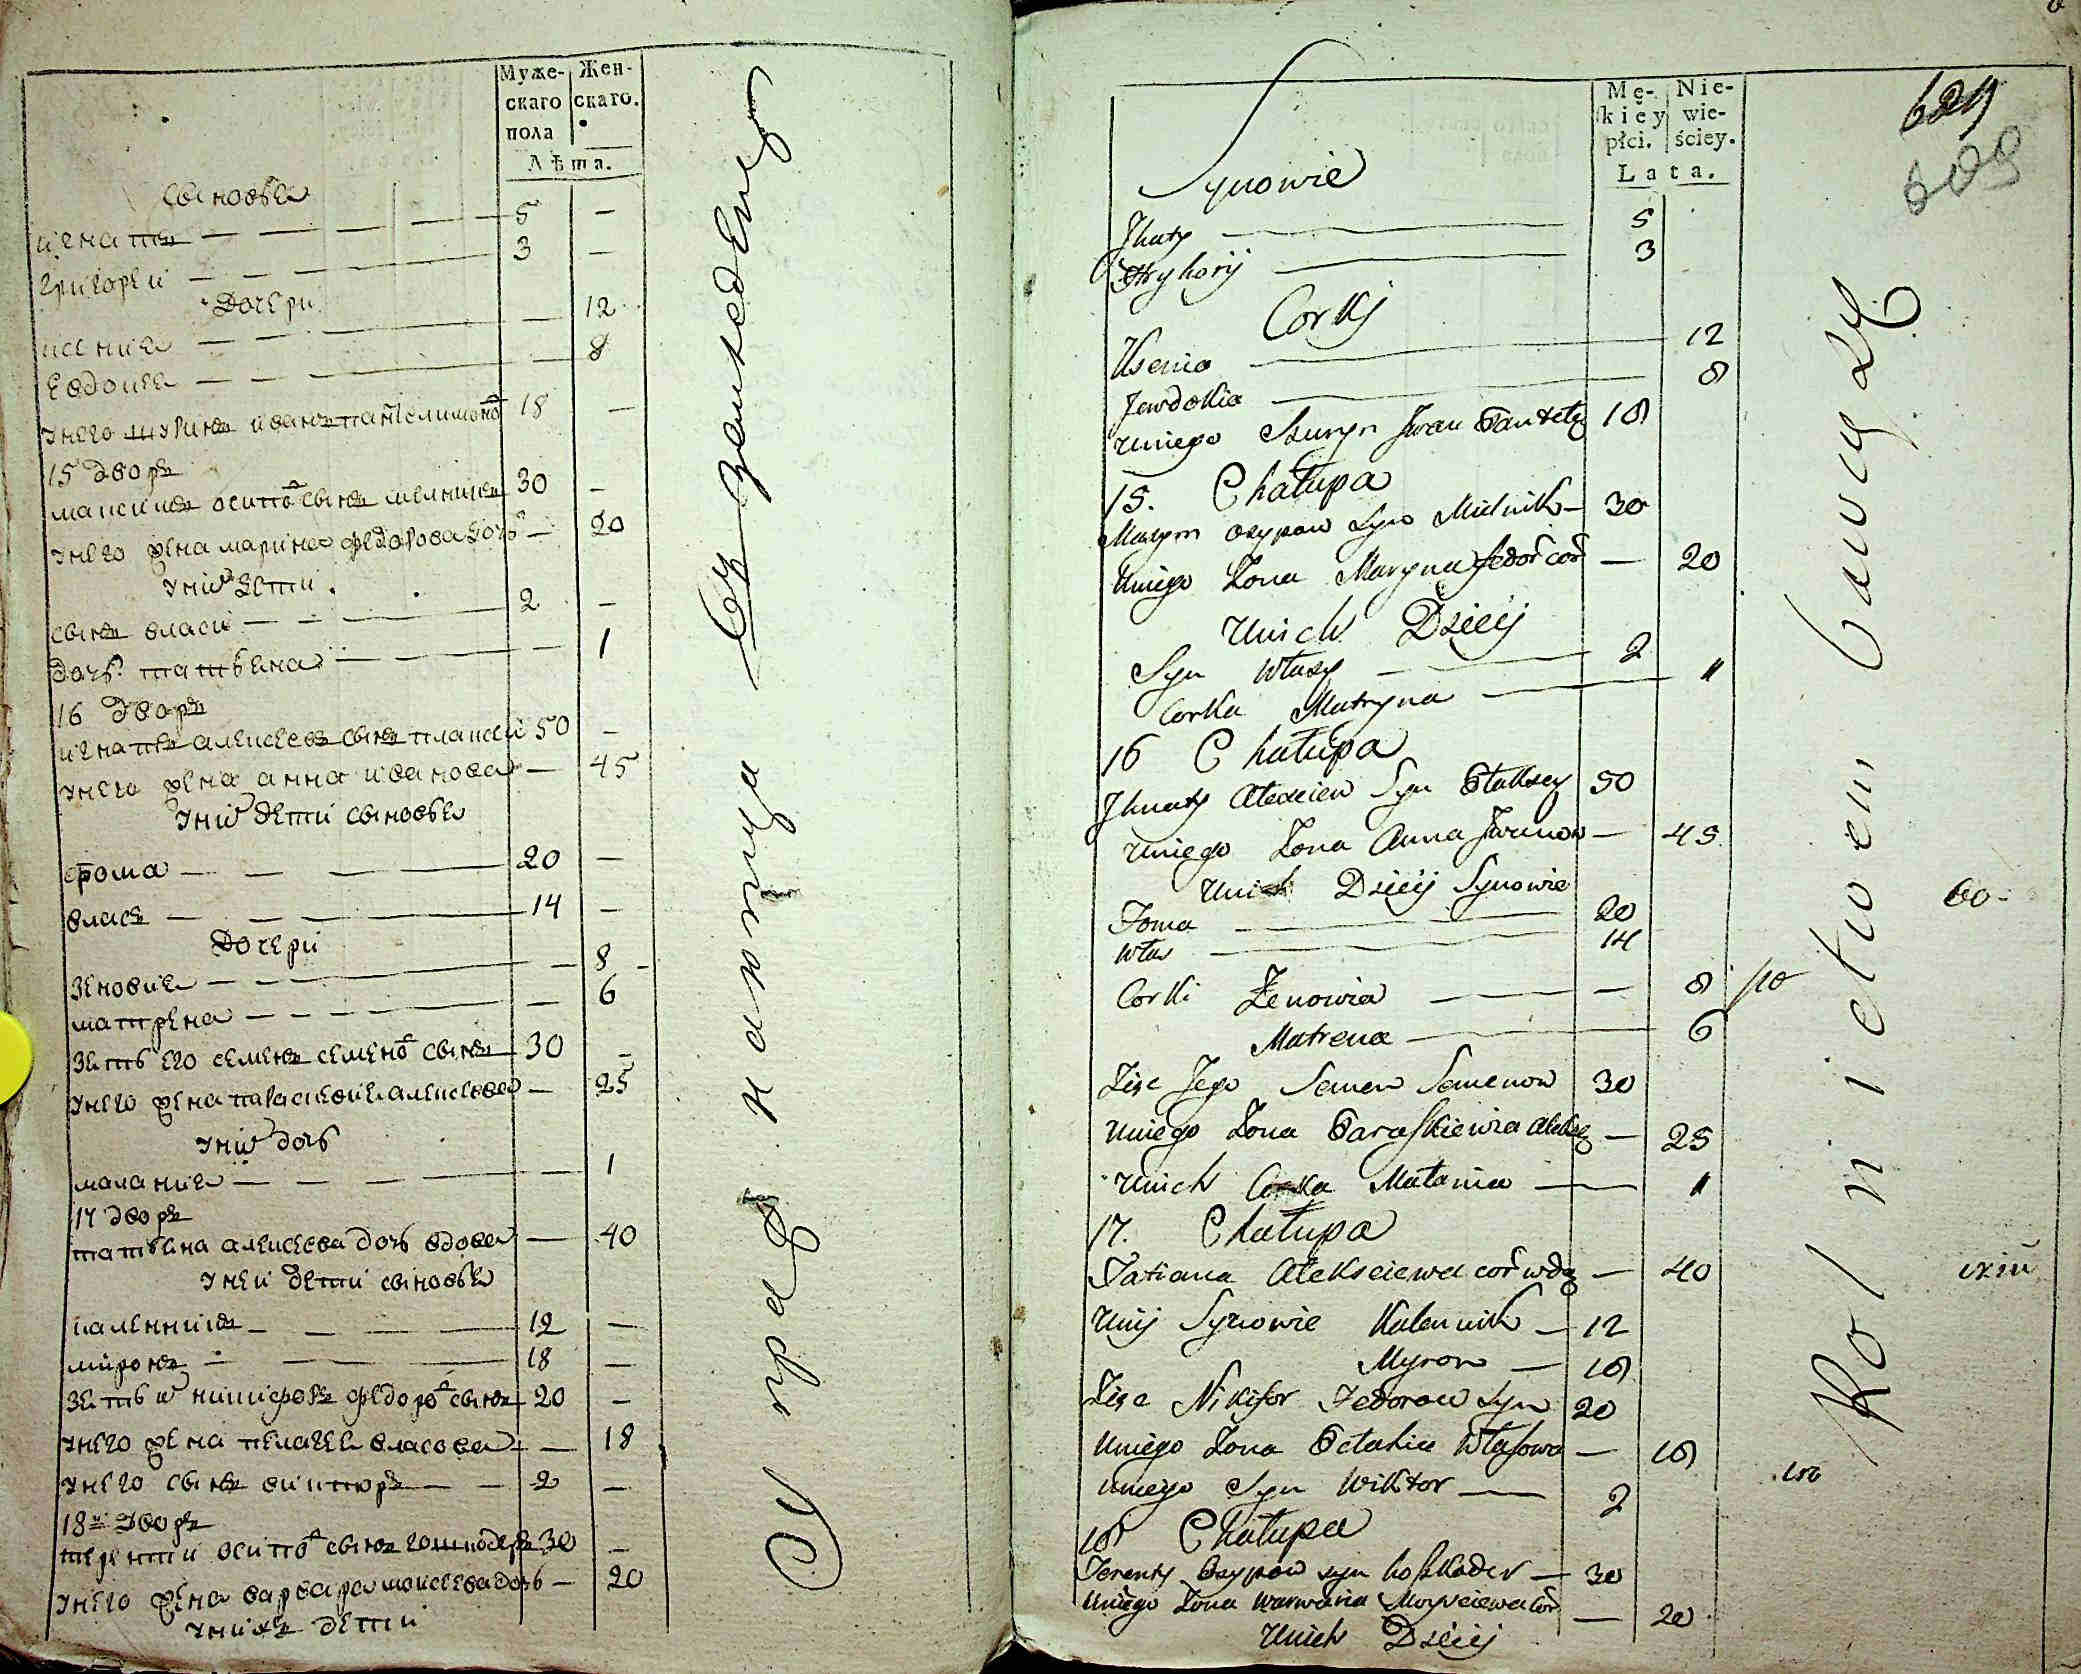 Муже- Жен-
скаго скаго.
пола
Лѣта.
сыновья
игнатъ — 5 —
григореи — 3 —
дочери
ксения — 12
евдокия — 8
унего шуринъ иванъ пантелимонов 18 —
15 дворъ
максимъ осипов сынъ мелникъ 30 —
унего жена марина федорова дочь — 20
уних дети.
сынъ власъ — 2 —
дочь татьяна — 1
16 дворъ
игнатъ алексеевъ сынъ плаксеи 50 —
унего жена анна иванова — 45
уних дети сыновья
фома — 20 —
власъ — 14 —
Дочери
зеновия — 8 —
матрена — 6
зять его семенъ семенов сынъ 30 —
унего жена параскевия алексеева — 25
уних дочь
малания — 1
17 дворъ
татьяна алексеева дочь вдова — 40
унеи дети сыновья
каленникъ — 12 —
миронъ — 18 —
зять никифоръ федоров сынъ 20 —
унего жена пелагея власова — 18
унего сынъ викторъ — 2 —
18й дворъ
терентии осипов сынъ гошкодеръ 30 —
унего жена варвара моисеева дочь — 20
унихъ дети
Mę- Nie-
skiey wie-
płci. ściey.
Lata.
629
609
Synowie
Jhnaty — 5
Hryhorij — 3
Corkj
Ksenia — 12
Jewdokia — 8
uniego Szuryn Jwan Pantele 18
15. Chałupa
Maxym Osypow Syn Mielnik — 30
uniego Żona Maryna fedor cor — 20
unich Dziecij
Syn Własy — 2
Corka Matryna — 1
16 Chałupa
Jhnaty Alexiew Syn Płaksey 50
uniego Żona Anna Jwanow — 45
unich Dziecij Synowie
Foma — 20
Włas — 14
Corki Zenowia — 8
Matrena — 6
Zięc Jego Semen Semenow 30
uniego Żona Paraskiewia Aleksy — 25
unich Corka Małania — 1
17. Chałupa
Tatiana Alekseiewa cor wdo — 40
unij Synowie Kalennik — 12
Myron — 18
Zięc Nikifor Fedorow Syn 20
uniego Żona Pelahia Własowa — 18
uniego Syn Wiktor — 2
18 Chałupa
Terenty Osypow syn hoszkoder — 30
uniego Żona Warwara Moysiewa Cor — 20
unich Dziecij